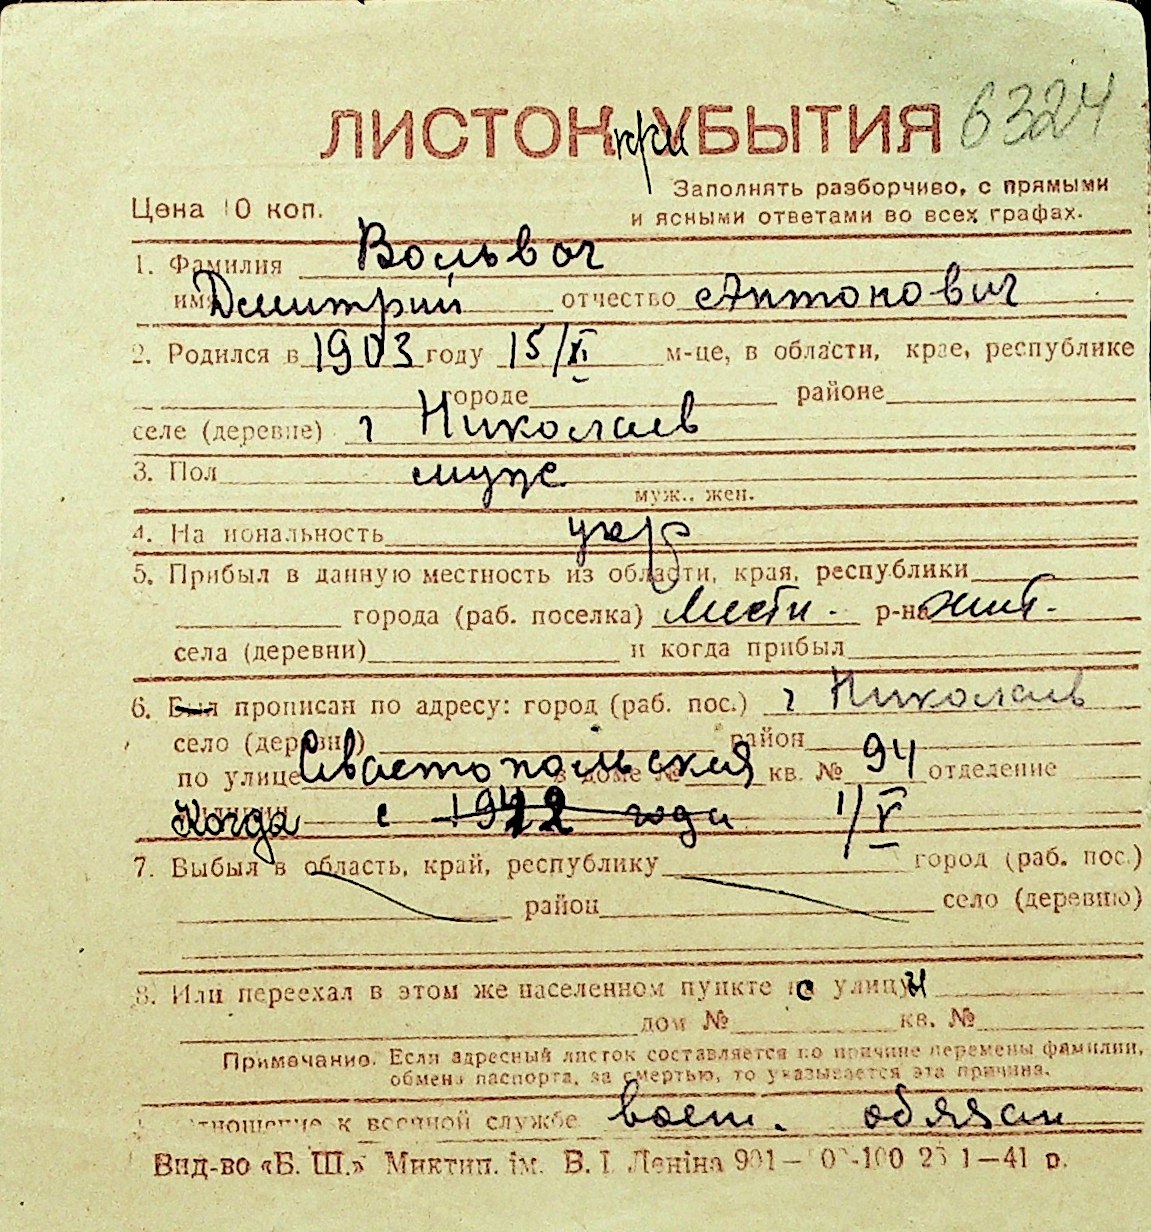 ЛИСТОК при УБЫТИЯ 6324
Заполнять разборчиво, с прямыми
Цена 10 коп. и ясными ответами во всех графах.
1. Фамилия Вольвач
имя Дмитрий отчество Антонович
2. Родился в 1903 году 15/XI м-це, в области, крае, республике
городе районе
селе (деревне) г Николаев
3. Пол муж
муж., жен.
4. Национальность укр
5. Прибыл в данную местность из области, края, республики
города (раб. поселка) Местн. р-на жит.
села (деревни) и когда прибыл
6. Был прописан по адресу: город (раб. пос.) г Николаев
село (деревня) район
по улице Севастопольская в доме № кв. № 94 отделение
Когда с 1922 года 1/V
7. Выбыл в область, край, республику город (раб. пос.)
район село (деревню)
8. Или переехал в этом же населенном пункте с улицы
дом № кв. №
Примечание. Если адресный листок составляется по причине перемены фамилии,
обмена паспорта, за смертью, то указывается эта причина.
Отношение к военной службе воен. обязан
Вид-во «Б. Ш.» Миктип. ім. В. І. Леніна 901— 1—41 р.